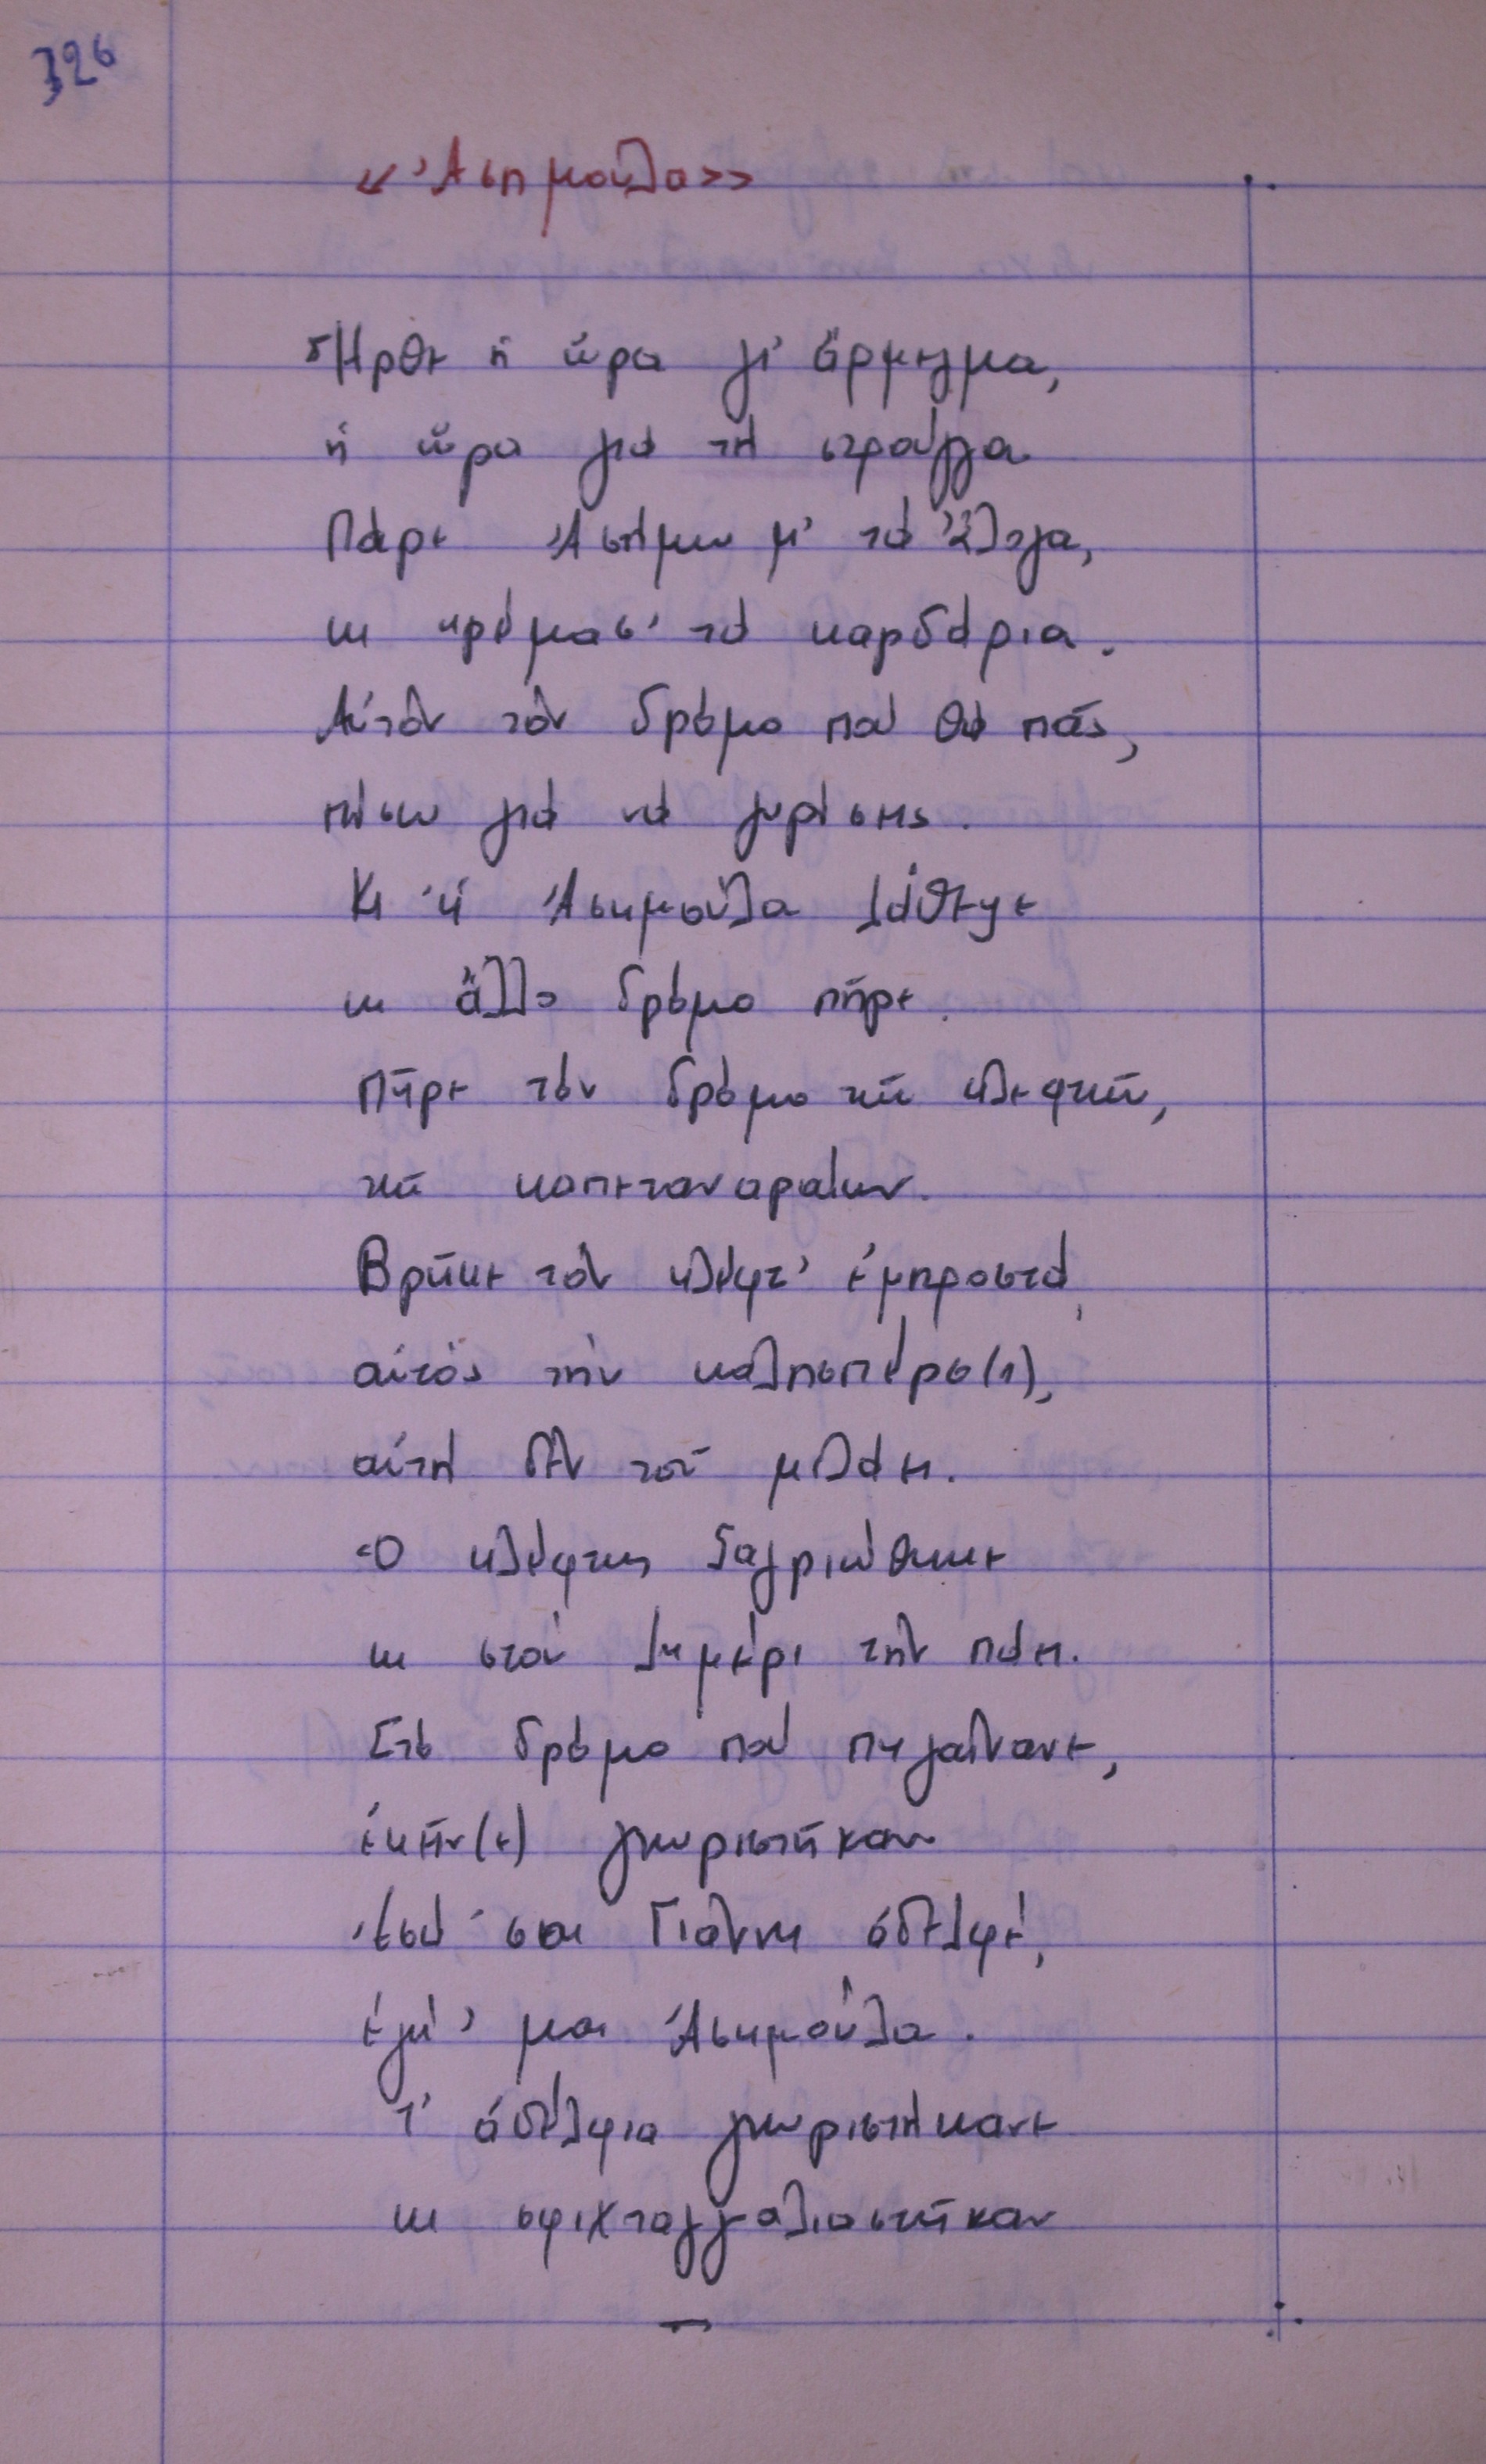 326
«Ἀσημούλα»
Ἦρθε ἡ ὥρα γι' ἄρμεγμα,
ἡ ὥρα γιά τή στρούγγα
Πάρε Ἀσήμω μ' τά ἄλογα,
κι κρέμασ' τά καρδάρια.
Αὐτόν τόν δρόμο πού θά πᾶς,
πίσω γιά νά γυρίσης.
Κι ἡ Ἀσημούλα λάθεψε
κι ἄλλο δρόμο πῆρε.
Πῆρε τόν δρόμο τῶν κλεφτῶν,
τῶν καπεταναραίων.
Βρῆκε τόν κλέφτ' ἐμπροστά,
αὐτός τήν καλησπέρσ(ι),
αὐτή δέν τοῦ μιλάει.
Ὁ κλέφτης ξαγριώθηκε
κι στού λημέρι τήν πάει.
Στό δρόμο πού πηγαίνανε,
ἐκεῖν(ε) γνωριστῆκαν
Ἐσύ 'σαι Γιάννη ἀδελφέ,
ἐγώ 'μαι Ἀσημούλα.
Τ' ἀδέλφια γνωριστήκανε
κι σφιχταγγαλιαστῆκαν